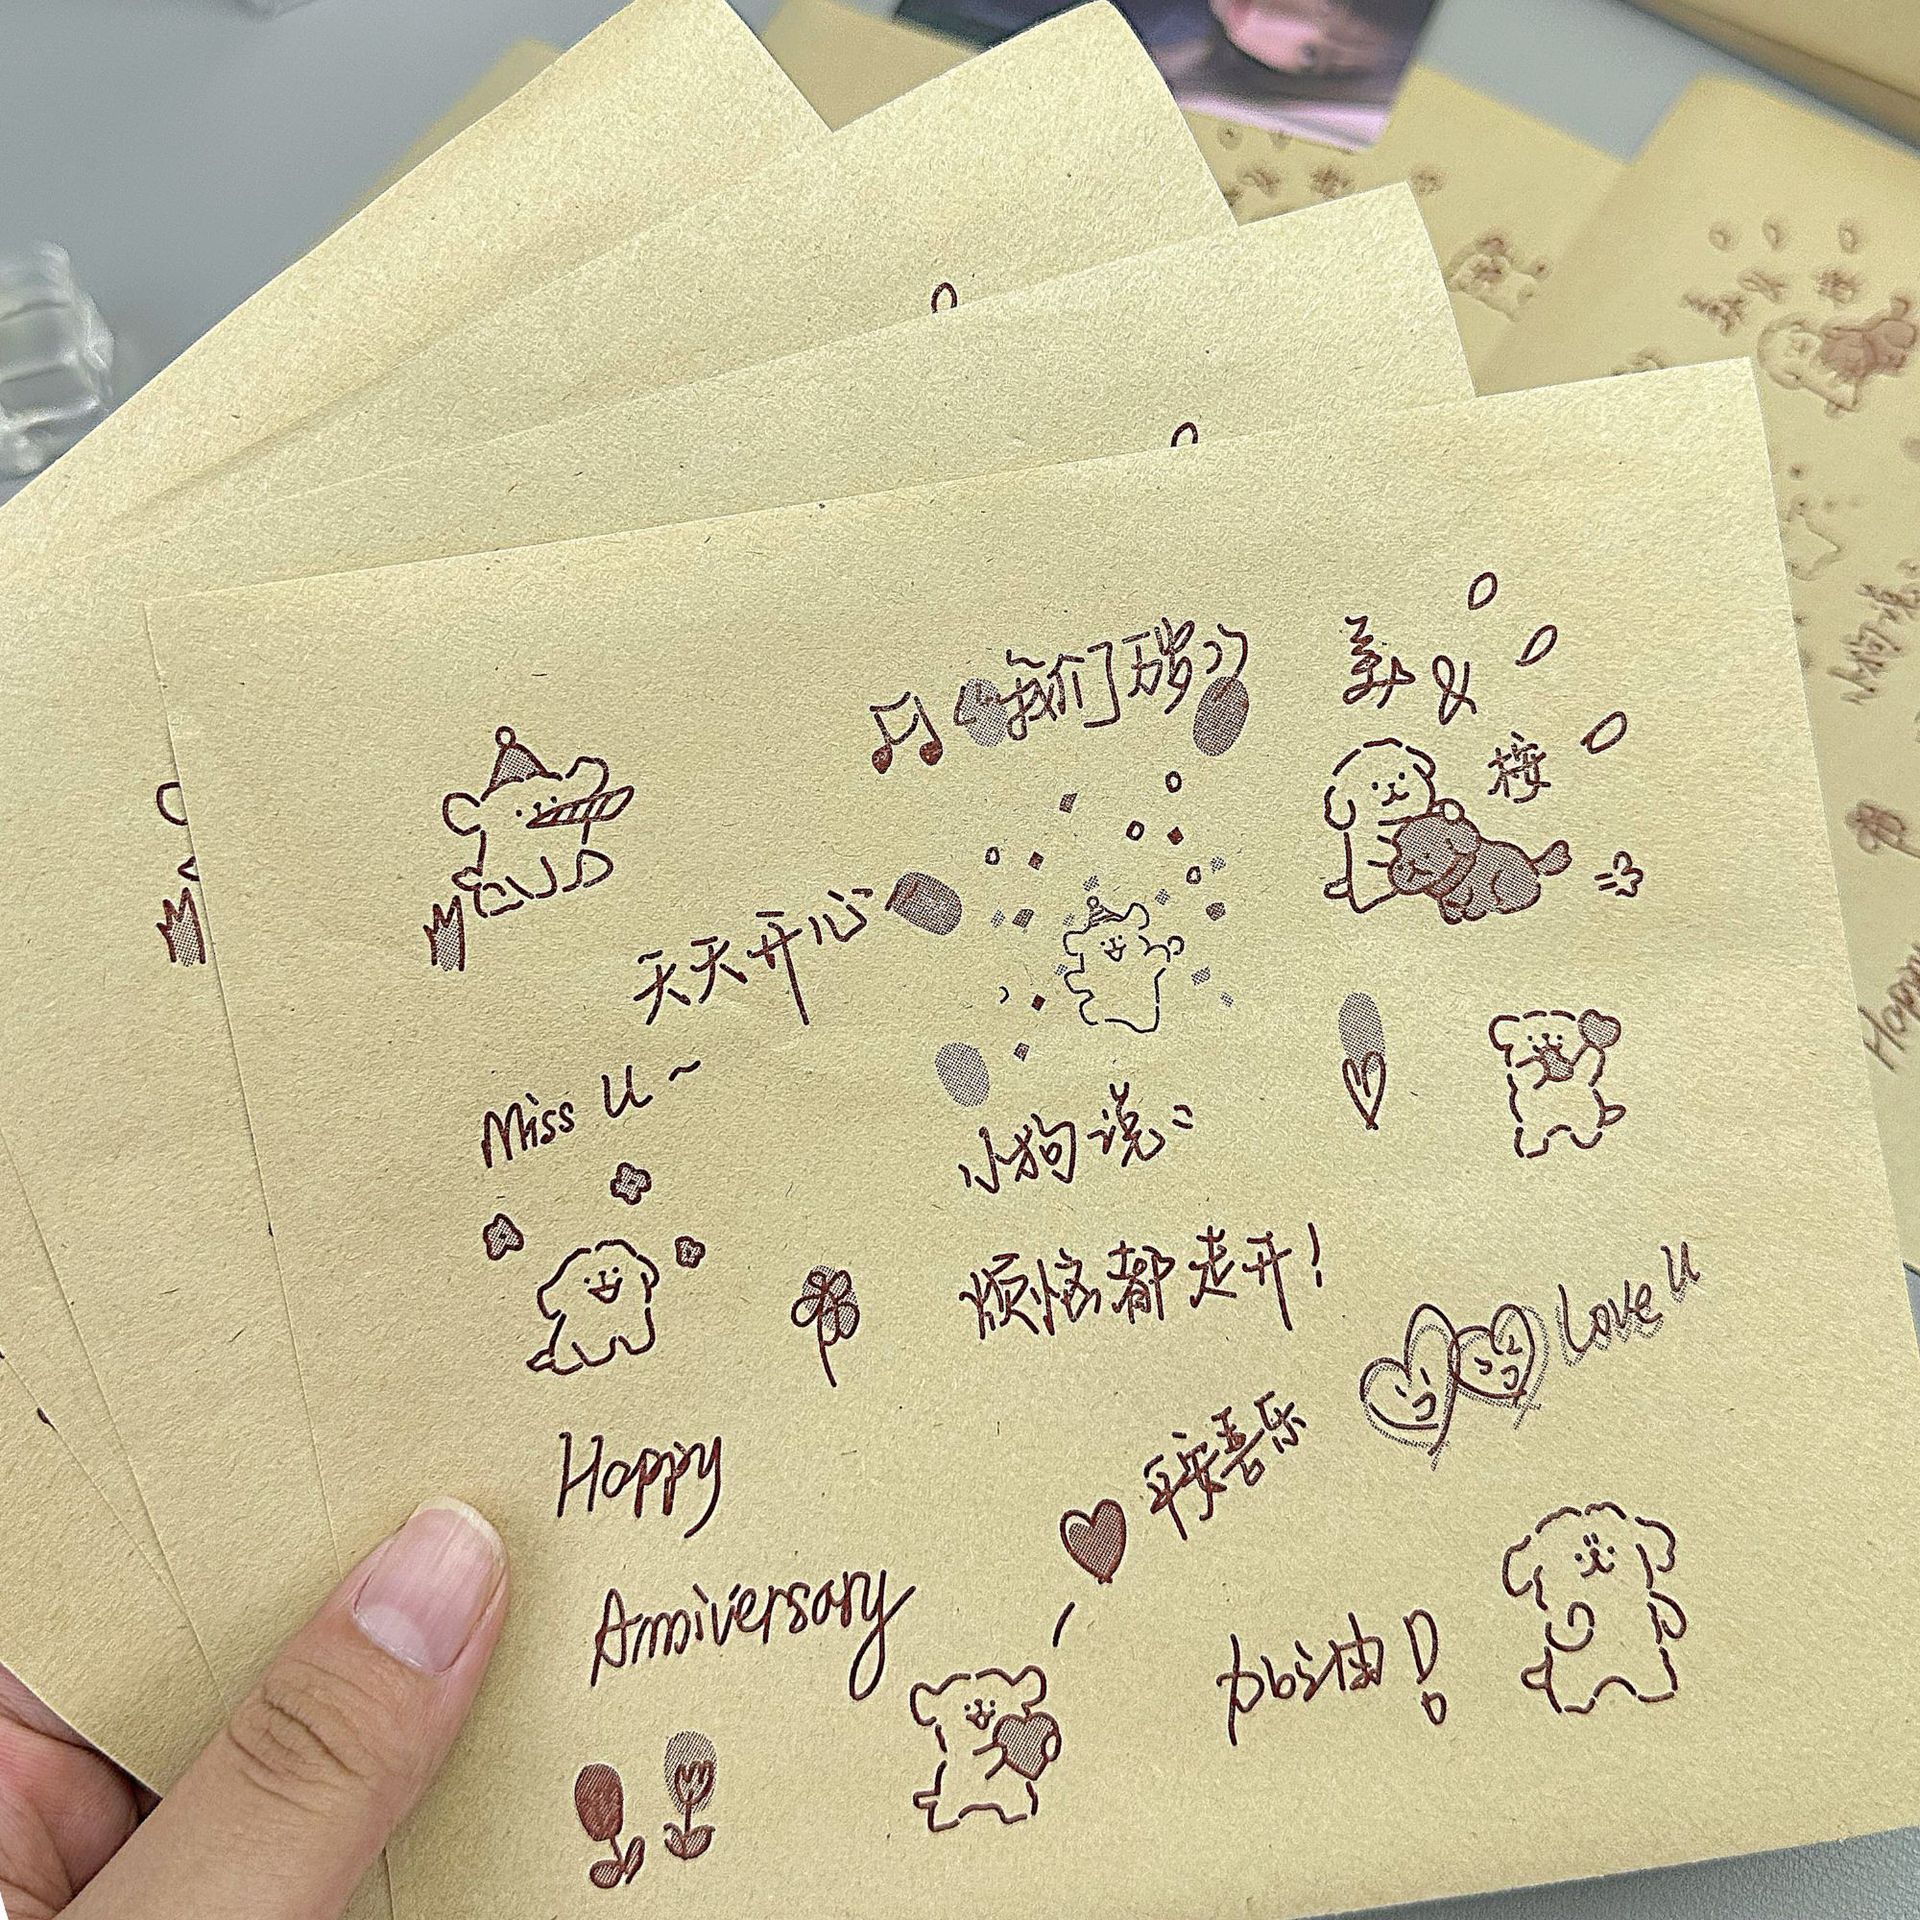 我们万岁
美 &
桉
天天开心
Miss U ~
小狗说:
烦恼都走开!
Love U
Happy
平安喜乐
Anniversary
加油!
Happy